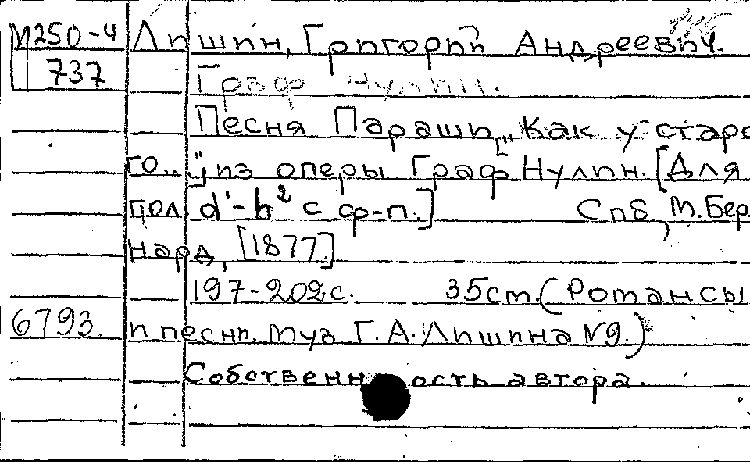 М250-4 Лишин, Григорий Андреевич.
737 Граф Нулин.
Песня Параши „Как у старо
го..." [из оперы Граф Нулин. [Для
гол. d'-h² с ф-п.] Спб, М. Бер
нард, [1877]
197-202 с. 35 см. (Романсы
6793. и песни. муз. Г. А. Лишина №9.)
Собственность автора.